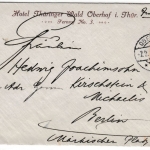 Hotel Thüringer Wald Oberhof i. Thür.
Fräulein
Hedwig Joachimsohn
Adr. Herren Kirschstein &
Michaelis
Berlin
Märkischer Platz